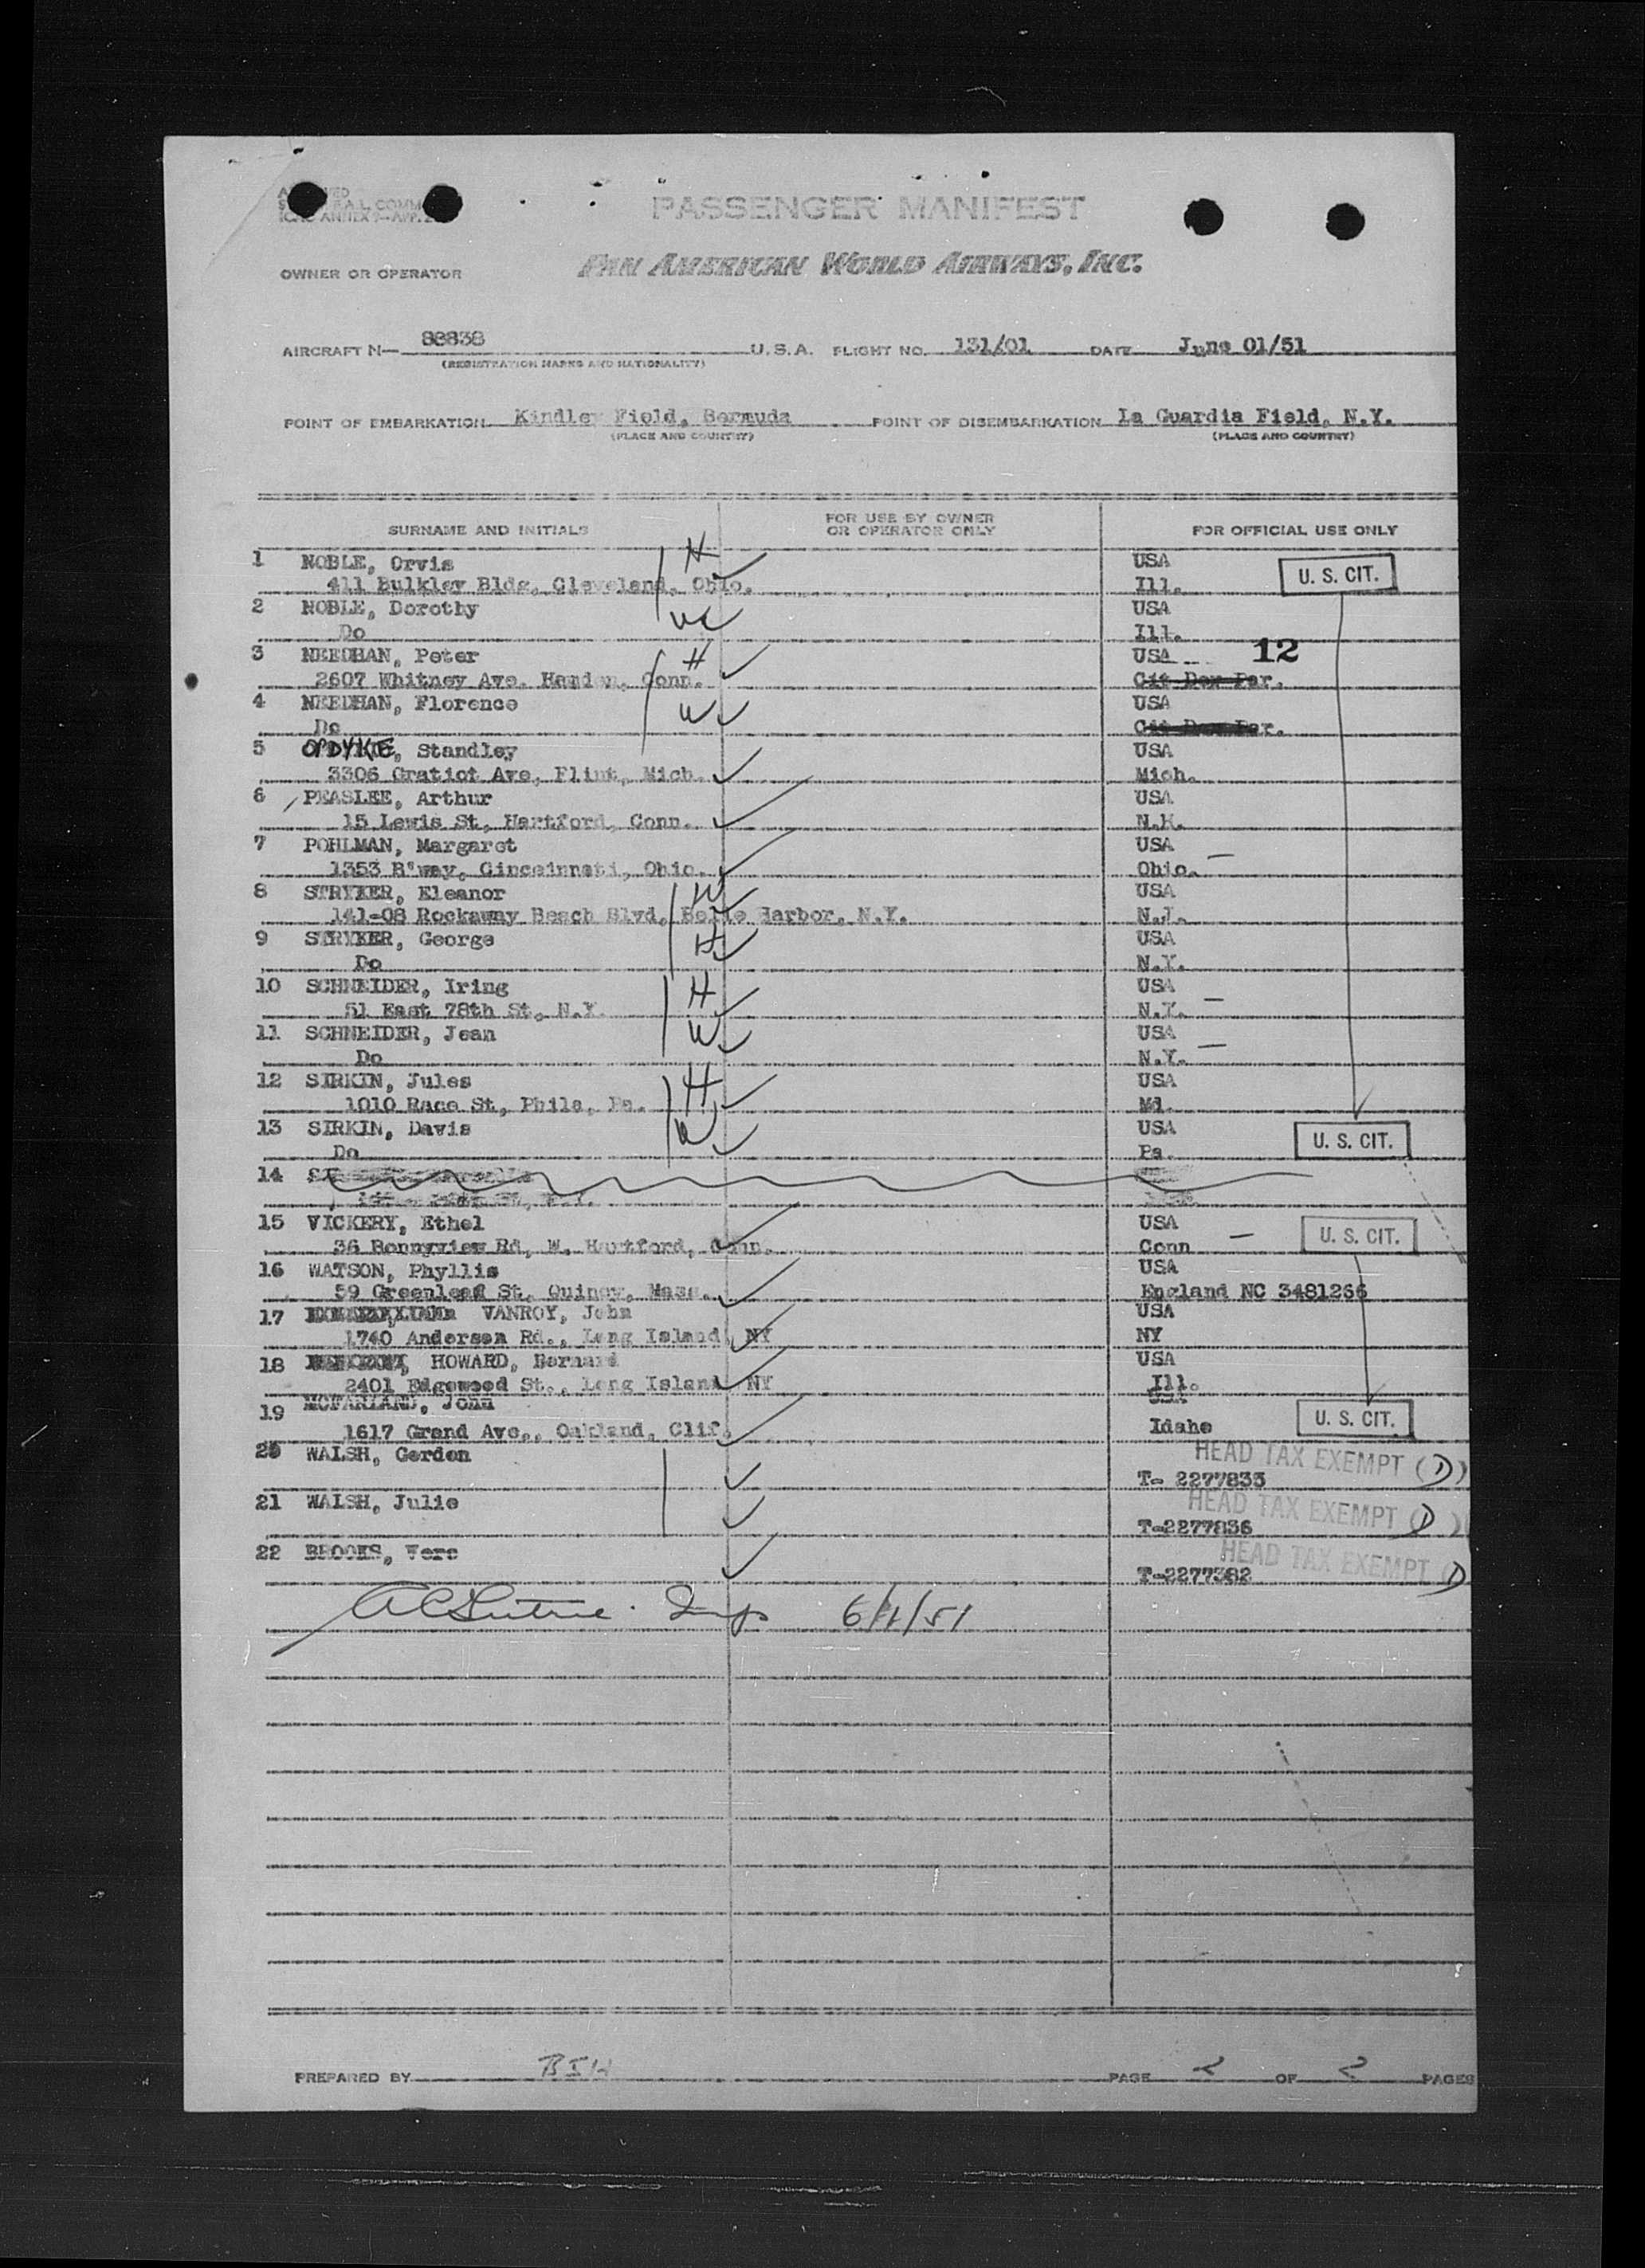 PASSENGER MANIFEST
OWNER OR OPERATOR PAN AMERICAN WORLD AIRWAYS, INC.
AIRCRAFT N— 88838 U.S.A. FLIGHT NO. 131/01 DATE June 01/51
(REGISTRATION MARKS AND NATIONALITY)
POINT OF EMBARKATION Kindley Field, Bermuda POINT OF DISEMBARKATION La Guardia Field, N.Y.
(PLACE AND COUNTRY) (PLACE AND COUNTRY)
SURNAME AND INITIALS FOR USE BY OWNER OR OPERATOR ONLY FOR OFFICIAL USE ONLY
1 NOBLE, Orvis H USA
411 Bulkley Bldg, Cleveland, Ohio. Ill. U. S. CIT.
2 NOBLE, Dorothy W USA
Do Ill.
3 NEEDHAN, Peter H USA 12
2607 Whitney Ave. Hamden, Conn. Cit Dom Par.
4 NEEDHAN, Florence W USA
Do Cit Dom Par.
5 OPDYKE, Standley USA
3306 Gratiot Ave, Flint, Mich. Mich.
6 PEASLEE, Arthur USA
15 Lewis St, Hartford, Conn. N.H.
7 POHLMAN, Margaret USA
1353 B'way, Cincainnati, Ohio. Ohio. —
8 STRYKER, Eleanor W USA
141-08 Rockaway Beach Blvd, Belle Harbor, N.Y. N.J.
9 STRYKER, George H USA
Do N.Y.
10 SCHNEIDER, Iring H USA
51 East 78th St, N.Y. N.Y. —
11 SCHNEIDER, Jean W USA
Do N.Y. —
12 SIRKIN, Jules H USA
1010 Race St, Phila, Pa. Md.
13 SIRKIN, Davis W USA
Do Pa. U. S. CIT.
14
15 VICKERY, Ethel USA
36 Bonnyview Rd, W. Hartford, Conn. Conn — U. S. CIT.
16 WATSON, Phyllis USA
59 Greenleaf St, Quincy, Mass. England NC 3481266
17 VANROY, John USA
1740 Anderson Rd., Long Island, NY NY
18 HOWARD, Bernard USA
2401 Edgewood St., Long Island, NY Ill.
19 MCFARLAND, John USA
1617 Grand Ave., Oakland, Clif. Idaho U. S. CIT.
20 WALSH, Gordon HEAD TAX EXEMPT (D)
T- 2277835
21 WALSH, Julie HEAD TAX EXEMPT (D)
T-2277836
22 BROOKS, Vere HEAD TAX EXEMPT (D)
T-2277382
6/1/51
PREPARED BY BIH PAGE 2 OF 2 PAGES